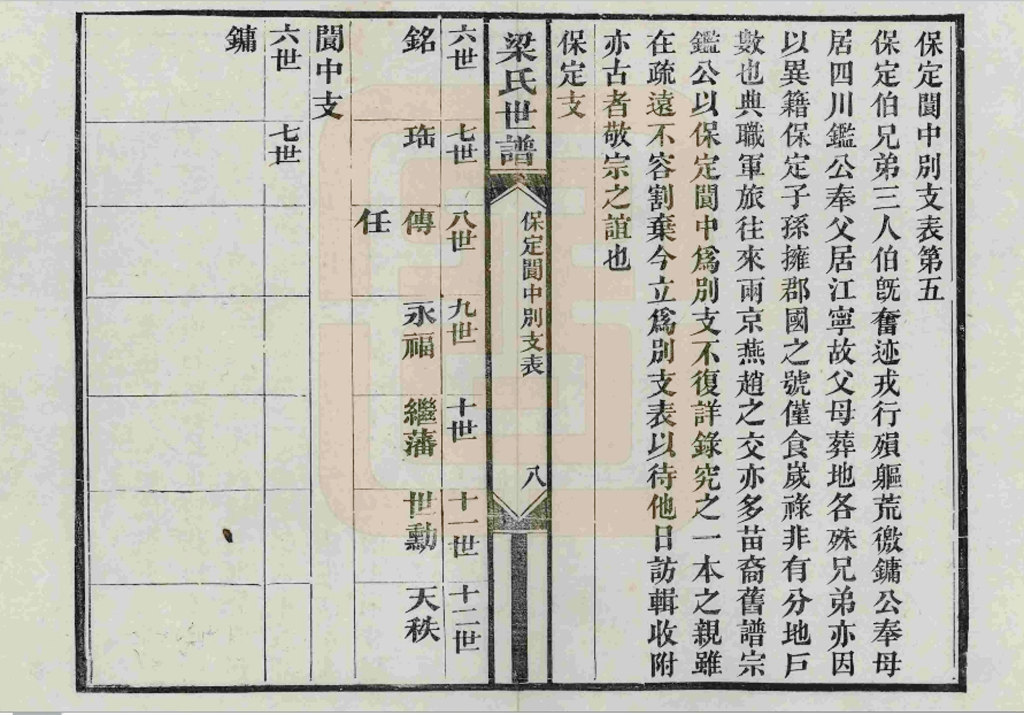 保定閬中別支表第五
保定伯兄弟三人伯旣奮迹戎行殞軀荒徼鏞公奉母
居四川鑑公奉父居江寧故父母葬地各殊兄弟亦因
以異籍保定子孫擁郡國之號僅食歲祿非有分地戶
數也典職軍旅往來兩京燕趙之交亦多苗裔舊譜宗
鑑公以保定閬中爲別支不復詳錄究之一本之親雖
在疏遠不容割棄今立爲別支表以待他日訪輯收附
亦古者敬宗之誼也
保定支
梁氏世譜
保定閬中別支表
八
六世
七世
八世
九世
十世
十一世
十二世
銘
珤
傳
永福
繼藩
世勳
天秩
任
閬中支
六世
七世
鏞